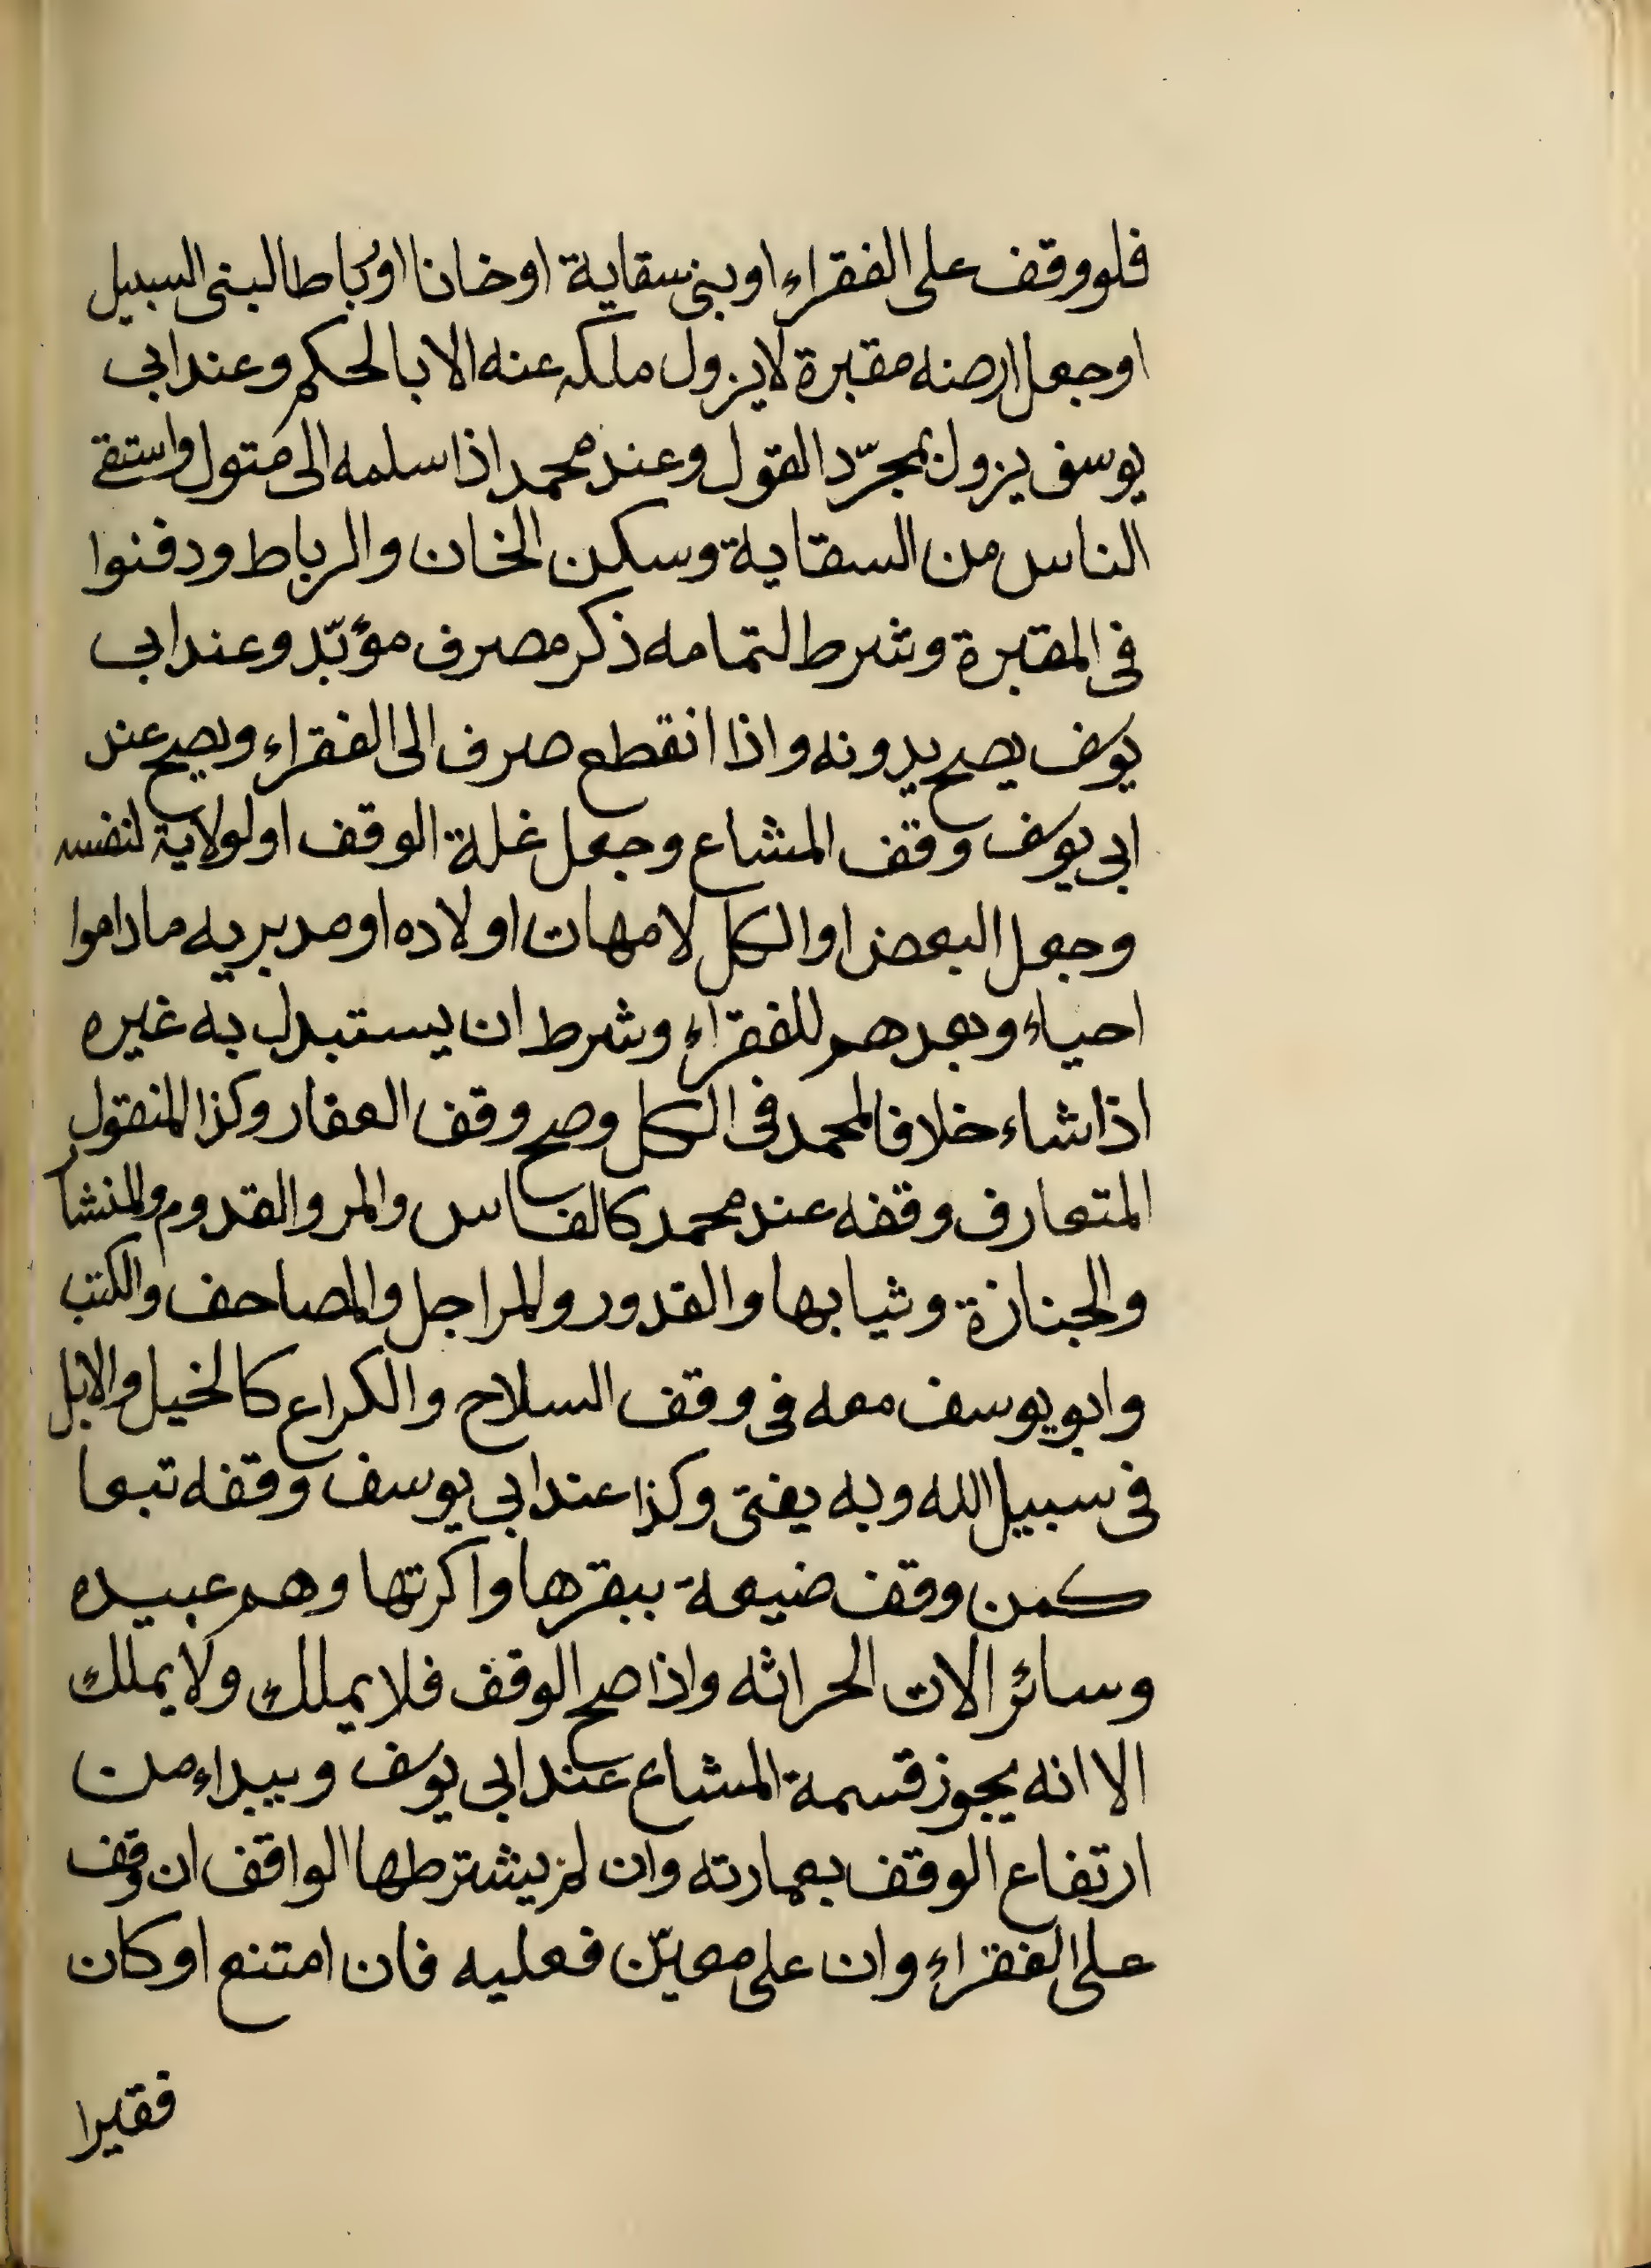 فلو وقف على الفقراء او بنى سقاية او خانا او رباطا لبنى السبيل
او جعل ارضه مقبرة لا يزول ملكه عنه الا بالحكم وعند ابى
يوسف يزول بمجرّد القول وعند محمد اذا سلمه الى متول واستقى
الناس من السقاية وسكن الخان والرباط ودفنوا
فى المقبرة وشرط لتمامه ذكر مصرف مؤبّد وعند ابى
يوسف يصح بدونه واذا انقطع صرف الى الفقراء ويصح عند
ابى يوسف وقف المشاع وجعل غلة الوقف او لولاية لنفسه
وجعل البعض او الكل لامهات اولاده او مدبريه ماداموا
احياء وبعدهم للفقراء وشرط ان يستبدل به غيره
اذا شاء خلافا لمحمد فى الكل وصح وقف العقار وكذا المنقول
المتعارف وقفه عند محمد كالفاس والمر والقدوم والمنشار
والجنازة وثيابها والقدور والمراجل والمصاحف والكتب
وابو يوسف معه فى وقف السلاح والكراع كالخيل والابل
فى سبيل الله وبه يفتى وكذا عند ابى يوسف وقفه تبعا
كمن وقف ضيعة ببقرها واكرتها وهم عبيده
وسائر الات الحراثه واذا صح الوقف فلا يملك ولا يملك
الا انه يجوز قسمة المشاع عند ابى يوسف ويبداء من
ارتفاع الوقف بعمارته وان لم يشترطها الواقف ان وقف
على الفقراء وان على معيّن فعليه فان امتنع او كان
فقيرا